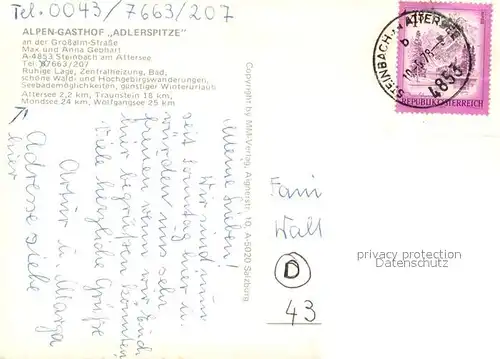 Tel. 0043/7663/207
ALPEN-GASTHOF „ADLERSPITZE"
an der Großalm-Straße
Max und Anna Gebhart
A-4853 Steinbach am Attersee
Tel. 07663/207
Ruhige Lage, Zentralheizung, Bad,
schöne Wald- und Hochgebirgswanderungen,
Seebademöglichkeiten, günstiger Winterurlaub
Attersee 2,2 km, Traunstein 18 km,
Mondsee 24 km, Wolfgangsee 25 km
Meine Lieben!
Wir sind nun
seit Sonntag hier u.
würden uns sehr
freuen wenn wir Euch
hier begrüßen könnten
Viele herzliche Grüße
Artur u. Marga
Adresse siehe
hier
Copyright by MM-Verlag, Aignerstr. 10, A-5020 Salzburg
Fam
Wall
D
43
STEINBACH AM ATTERSEE
b
4853
REPUBLIK ÖSTERREICH
privacy protection
Datenschutz